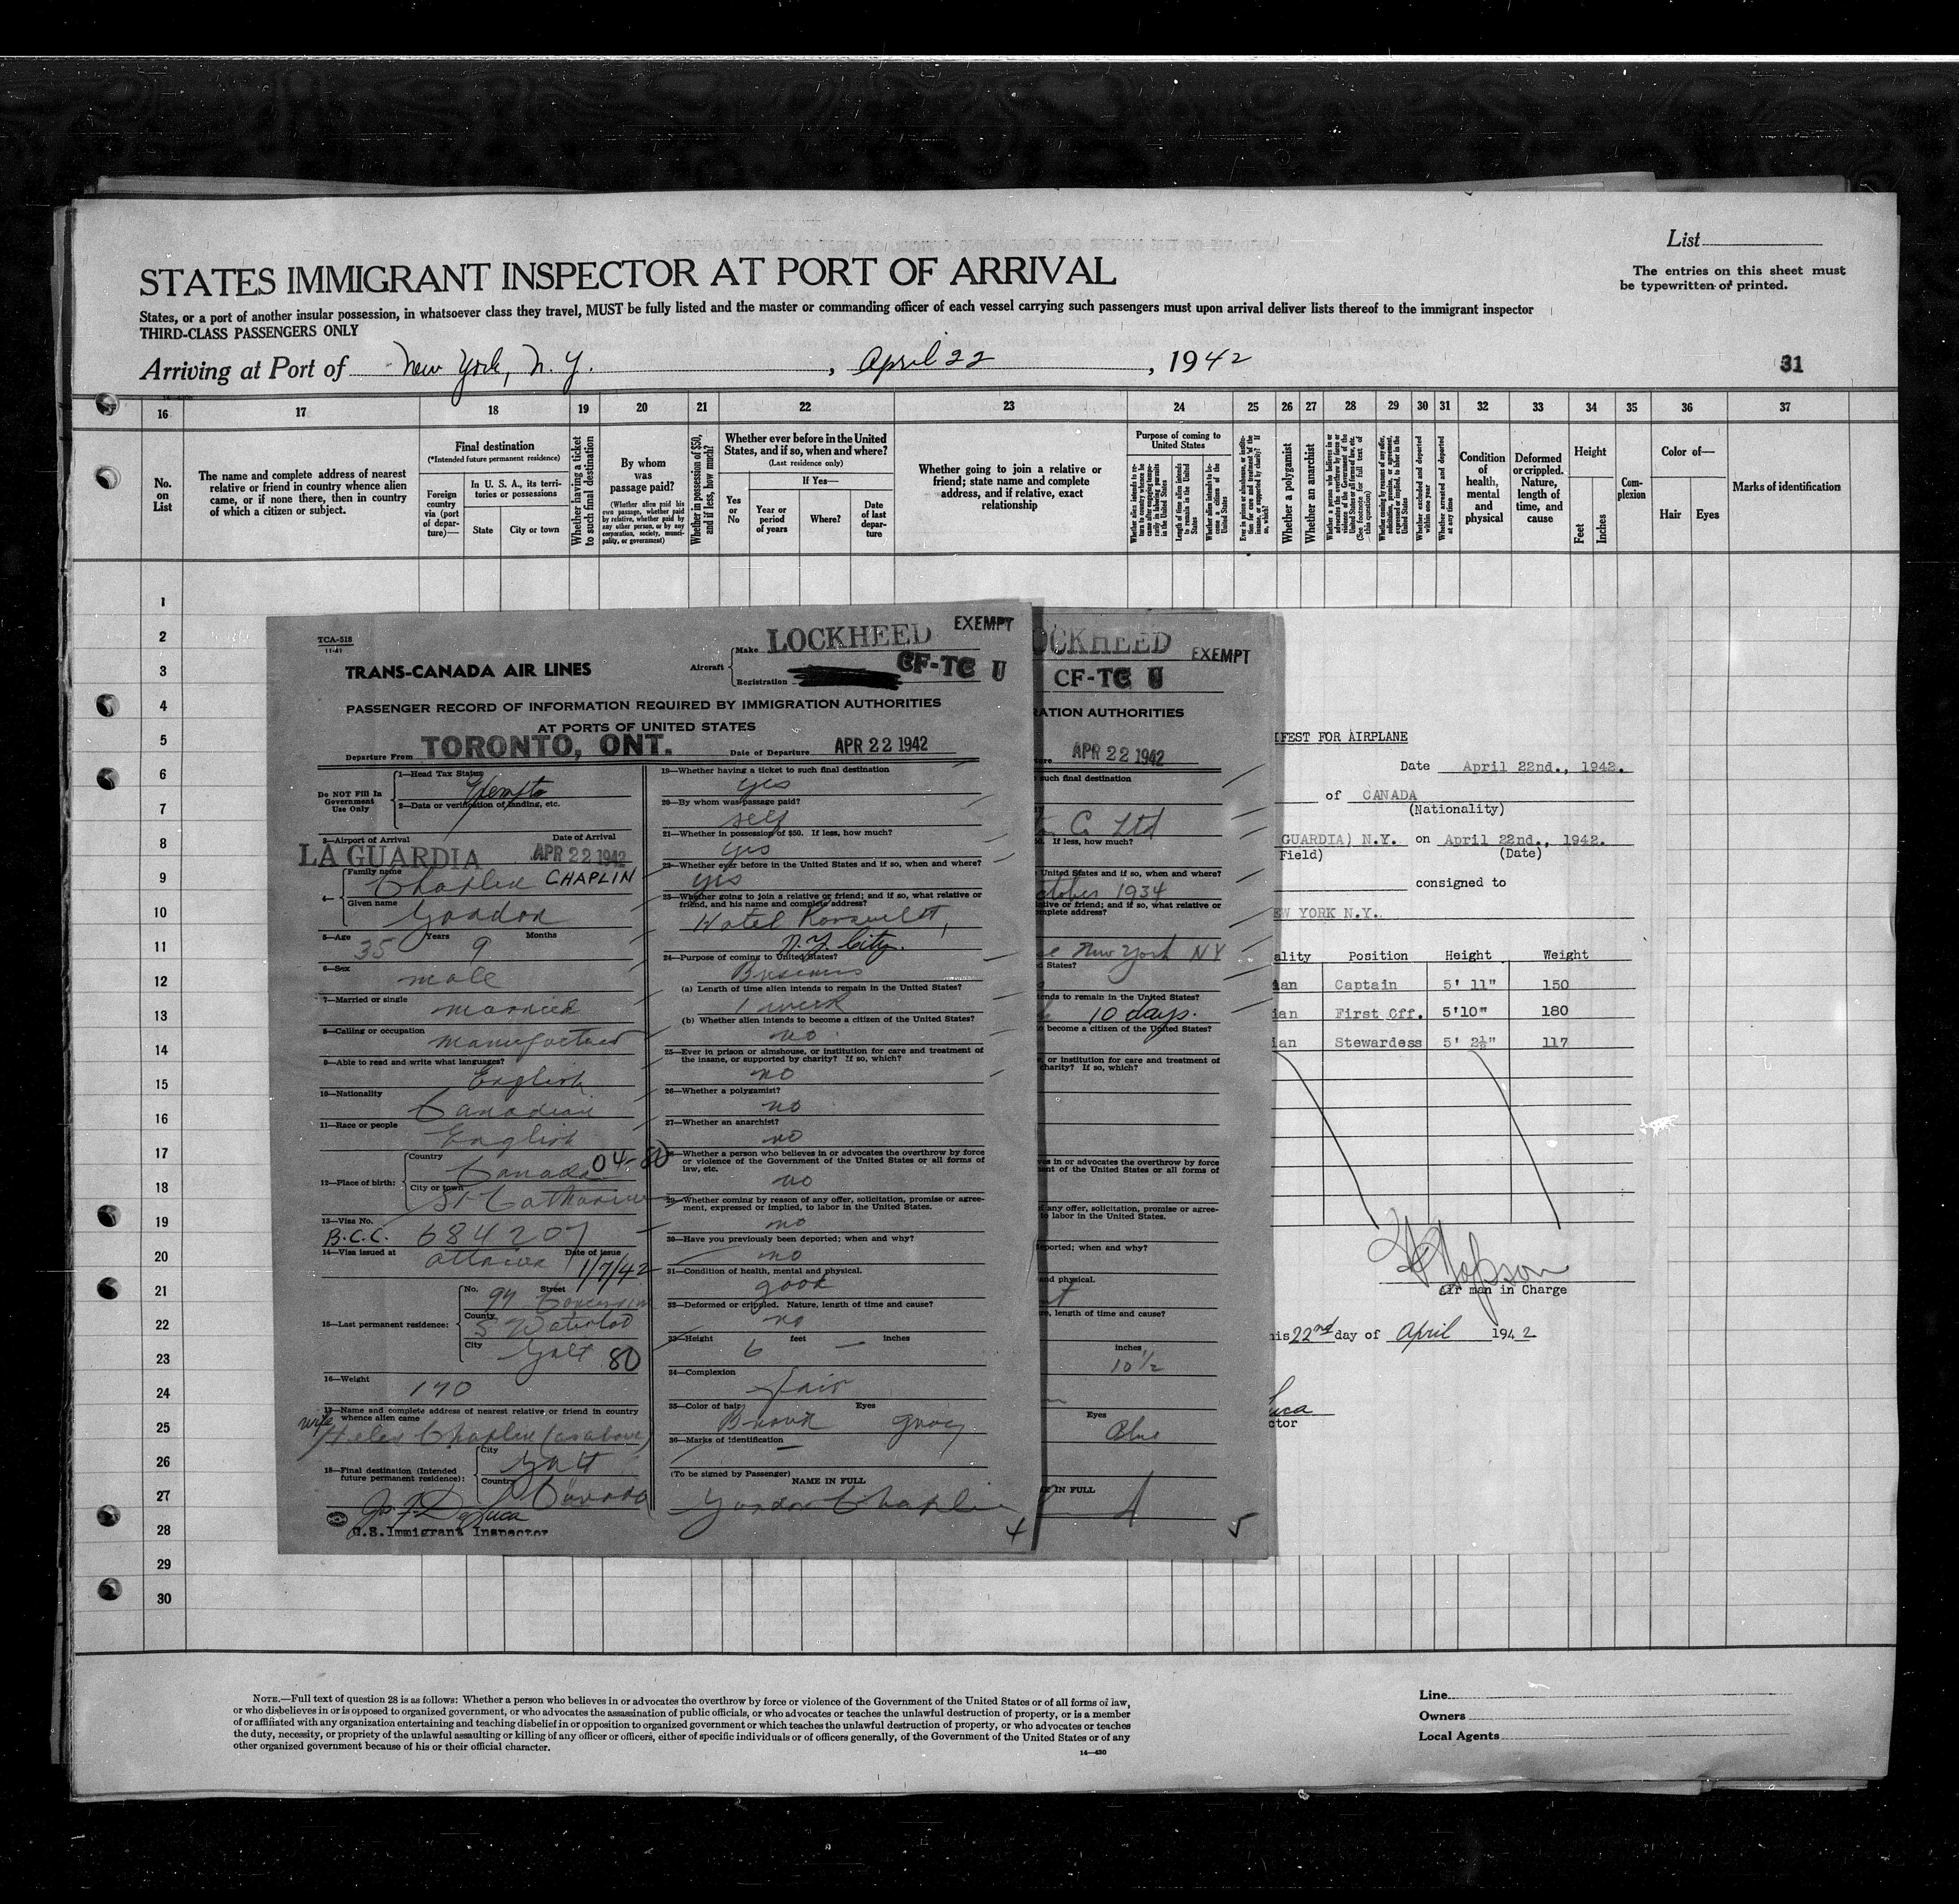 List
The entries on this sheet must
be typewritten or printed.
STATES IMMIGRANT INSPECTOR AT PORT OF ARRIVAL
States, or a port of another insular possession, in whatsoever class they travel, MUST be fully listed and the master or commanding officer of each vessel carrying such passengers must upon arrival deliver lists thereof to the immigrant inspector
THIRD-CLASS PASSENGERS ONLY
Arriving at Port of New York, N. Y., April 22, 1942
31
16 17 18 19 20 21 22 23 24 25 26 27 28 29 30 31 32 33 34 35 36 37
No. on List
The name and complete address of nearest
relative or friend in country whence alien
came, or if none there, then in country
of which a citizen or subject.
Final destination
(*Intended future permanent residence)
Foreign country via (port of departure)—
In U. S. A., its territories or possessions
State
City or town
Whether having a ticket to such final destination
By whom was passage paid?
(Whether alien paid his own passage, whether paid by relative, whether paid by any other person, or by any corporation, society, municipality, or government)
Whether in possession of $50, and if less, how much?
Whether ever before in the United
States, and if so, when and where?
(Last residence only)
Yes or No
If Yes—
Year or period of years
Where?
Date of last departure
Whether going to join a relative or
friend; state name and complete
address, and if relative, exact
relationship
Purpose of coming to
United States
Length of time alien intends to remain in the United States
Whether alien intends to become a citizen of the United States
Whether a polygamist
Whether an anarchist
Whether excluded and deported within one year
Whether arrested and deported at any time
Condition of health, mental and physical
Deformed or crippled. Nature, length of time, and cause
Height
Feet
Inches
Complexion
Color of—
Hair
Eyes
Marks of identification
1
2
3
4
5
6
7
8
9
10
11
12
13
14
15
16
17
18
19
20
21
22
23
24
25
26
27
28
29
30
TCA-518
(1-41)
TRANS-CANADA AIR LINES
Aircraft
Make LOCKHEED
EXEMPT
Registration CF-TC U
PASSENGER RECORD OF INFORMATION REQUIRED BY IMMIGRATION AUTHORITIES
AT PORTS OF UNITED STATES
Departure From TORONTO, ONT. Date of Departure APR 22 1942
Do NOT Fill In
Government
Use Only
1—Head Tax Status
2—Data or verification of landing, etc.
3—Airport of Arrival Date of Arrival
LA GUARDIA APR 22 1942
4—
Family name
Chaplin CHAPLIN
Given name
Gordon
5—Age 35 Years 9 Months
6—Sex
male
7—Married or single
married
8—Calling or occupation
9—Able to read and write what languages?
English
10—Nationality
Canadian
11—Race or people
English
12—Place of birth:
Country
Canada 04-80
City or town
St Catharines
13—Visa No.
B.C.C. 684207
14—Visa issued at Date of issue
Ottawa 1/7/42
15—Last permanent residence:
No. Street
County
S Waterloo
City
Galt 80
16—Weight
170
17—Name and complete address of nearest relative or friend in country
whence alien came
wife Helen Chaplin (as above)
18—Final destination (Intended
future permanent residence):
City
Galt
Country
Canada
U.S. Immigrant Inspector
19—Whether having a ticket to such final destination
yes
20—By whom was passage paid?
self
21—Whether in possession of $50. If less, how much?
yes
22—Whether ever before in the United States and if so, when and where?
yes
23—Whether going to join a relative or friend; and if so, what relative or
friend, and his name and complete address?
Hotel Roosevelt,
N.Y. City.
24—Purpose of coming to United States?
Business
(a) Length of time alien intends to remain in the United States?
1 week
(b) Whether alien intends to become a citizen of the United States?
no
25—Ever in prison or almshouse, or institution for care and treatment of
the insane, or supported by charity? If so, which?
no
26—Whether a polygamist?
no
27—Whether an anarchist?
no
28—Whether a person who believes in or advocates the overthrow by force
or violence of the Government of the United States or all forms of
law, etc.
no
29—Whether coming by reason of any offer, solicitation, promise or agree-
ment, expressed or implied, to labor in the United States.
no
30—Have you previously been deported; when and why?
no
31—Condition of health, mental and physical.
good
32—Deformed or crippled. Nature, length of time and cause?
no
33—Height 6 feet — inches
34—Complexion
fair
35—Color of hair Eyes
Brown grey
36—Marks of identification
(To be signed by Passenger)
NAME IN FULL
Gordon Chaplin
4
OCKHEED
EXEMPT
CF-TC U
ATION AUTHORITIES
APR 22 1942
such final destination
Co Ltd
If less, how much?
United States and if so, when and where?
ctober 1934
tive or friend; and if so, what relative or
mplete address?
New York NY
States?
ends to remain in the United States?
10 days.
become a citizen of the United States?
or institution for care and treatment of
charity? If so, which?
es in or advocates the overthrow by force
ent of the United States or all forms of
any offer, solicitation, promise or agree-
to labor in the United States.
eported; when and why?
and physical.
e, length of time and cause?
inches
10 1/2
Eyes
Blue
IN FULL
5
IFEST FOR AIRPLANE
Date April 22nd., 1942.
of CANADA
(Nationality)
GUARDIA) N.Y. on April 22nd., 1942.
Field) (Date)
consigned to
EW YORK N.Y.
ality Position Height Weight
ian Captain 5' 11" 150
ian First Off. 5'10" 180
ian Stewardess 5' 2½" 117
Air man in Charge
is 22nd day of April 1942
uca
ctor
NOTE.—Full text of question 28 is as follows: Whether a person who believes in or advocates the overthrow by force or violence of the Government of the United States or of all forms of law,
or who disbelieves in or is opposed to organized government, or who advocates the assassination of public officials, or who advocates or teaches the unlawful destruction of property, or is a member
of or affiliated with any organization entertaining and teaching disbelief in or opposition to organized government or which teaches the unlawful destruction of property, or who advocates or teaches
the duty, necessity, or propriety of the unlawful assaulting or killing of any officer or officers, either of specific individuals or of officers generally, of the Government of the United States or of any
other organized government because of his or their official character.
14—430
Line
Owners
Local Agents